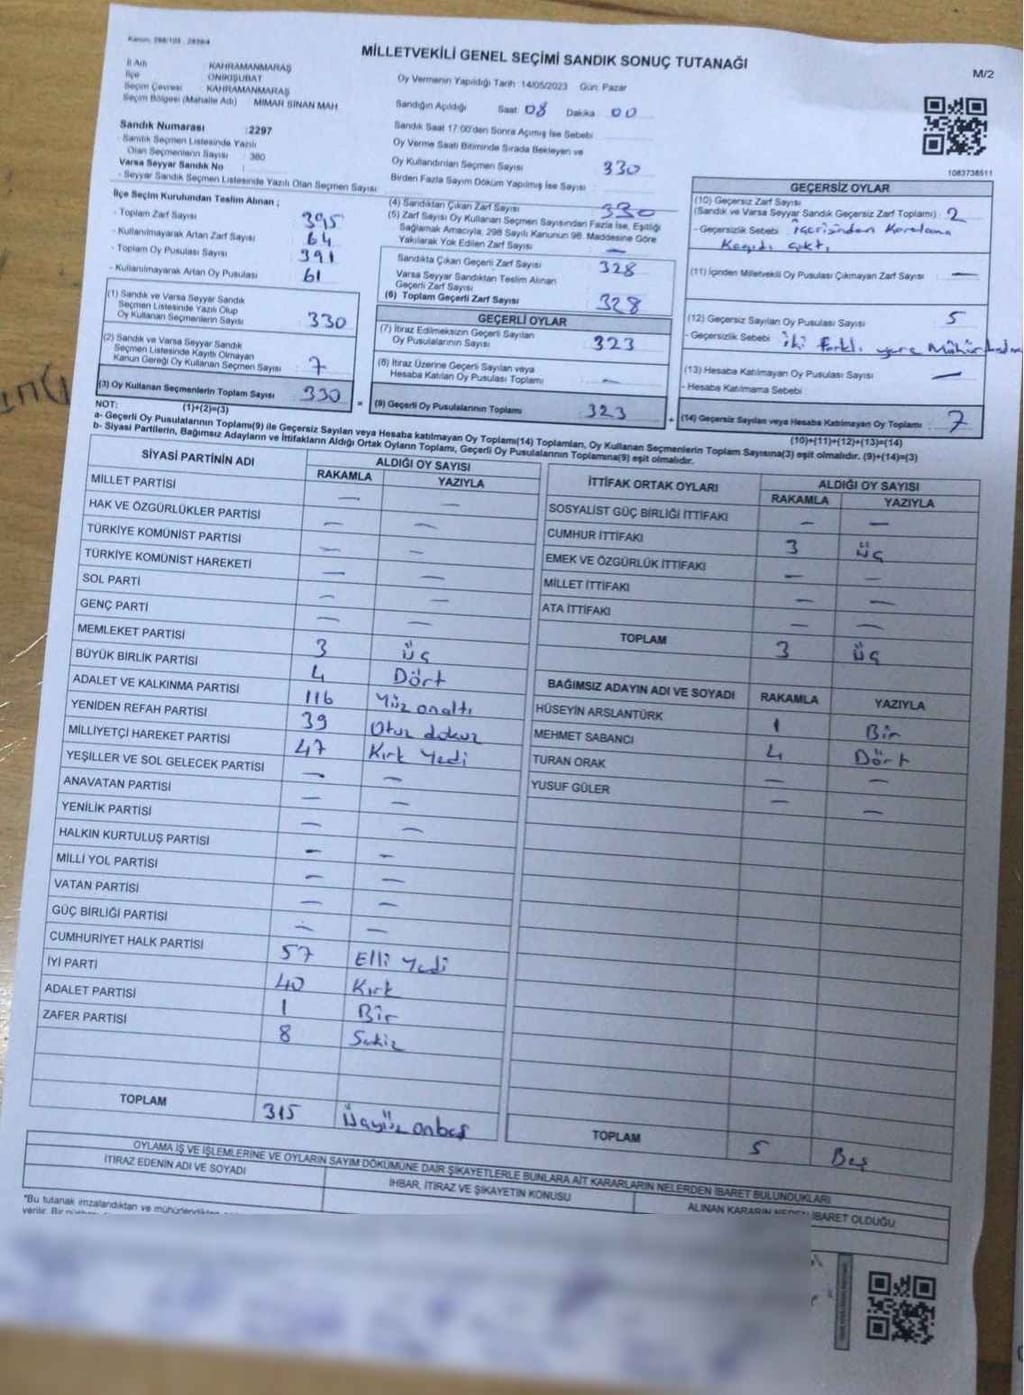 MİLLETVEKİLİ GENEL SEÇİMİ SANDIK SONUÇ TUTANAĞI
M/2
İl Adı KAHRAMANMARAŞ
İlçe ONİKİŞUBAT
Seçim Çevresi KAHRAMANMARAŞ
Seçim Bölgesi (Mahalle Adı) MİMAR SİNAN MAH
Sandık Numarası :2297
Sandık Seçmen Listesinde Yazılı
Olan Seçmenlerin Sayısı : 380
Varsa Seyyar Sandık No :
- Seyyar Sandık Seçmen Listesinde Yazılı Olan Seçmen Sayısı
Oy Vermenin Yapıldığı Tarih :14/05/2023 Gün: Pazar
Sandığın Açıldığı Saat 08 Dakika 00
Sandık Saat 17:00'den Sonra Açımış İse Sebebi
Oy Verme Saati Bitiminde Sırada Bekleyen ve
Oy Kullandırılan Seçmen Sayısı 330
Birden Fazla Sayım Döküm Yapılmış İse Sayısı
1083738511
İlçe Seçim Kurulundan Teslim Alınan ;
- Toplam Zarf Sayısı 395
- Kullanılmayarak Artan Zarf Sayısı 64
- Toplam Oy Pusulası Sayısı 391
- Kullanılmayarak Artan Oy Pusulası 61
(1) Sandık ve Varsa Seyyar Sandık
Seçmen Listesinde Yazılı Olup
Oy Kullanan Seçmenlerin Sayısı 330
(2) Sandık ve Varsa Seyyar Sandık
Seçmen Listesinde Kayıtlı Olmayan
Kanun Gereği Oy Kullanan Seçmen Sayısı 7
(3) Oy Kullanan Seçmenlerin Toplam Sayısı 330
(4) Sandıktan Çıkan Zarf Sayısı 330
(5) Zarf Sayısı Oy Kullanan Seçmen Sayısından Fazla İse, Eşitliği
Sağlamak Amacıyla, 298 Sayılı Kanunun 98. Maddesine Göre
Yakılarak Yok Edilen Zarf Sayısı —
Sandıkta Çıkan Geçerli Zarf Sayısı 328
Varsa Seyyar Sandıktan Teslim Alınan
Geçerli Zarf Sayısı
(6) Toplam Geçerli Zarf Sayısı 328
GEÇERLİ OYLAR
(7) İtiraz Edilmeksizin Geçerli Sayılan
Oy Pusulalarının Sayısı 323
(8) İtiraz Üzerine Geçerli Sayılan veya
Hesaba Katılan Oy Pusulası Toplamı —
= (9) Geçerli Oy Pusulalarının Toplamı 323
GEÇERSİZ OYLAR
(10) Geçersiz Zarf Sayısı
(Sandık ve Varsa Seyyar Sandık Geçersiz Zarf Toplamı) : 2
- Geçersizlik Sebebi içerisinden Karalama
Kağıdı çıktı
(11) İçinden Milletvekili Oy Pusulası Çıkmayan Zarf Sayısı —
(12) Geçersiz Sayılan Oy Pusulası Sayısı 5
- Geçersizlik Sebebi iki farklı yere
(13) Hesaba Katılmayan Oy Pusulası Sayısı —
- Hesaba Katılmama Sebebi
+ (14) Geçersiz Sayılan veya Hesaba Katılmayan Oy Toplamı 7
NOT: (1)+(2)=(3) (10)+(11)+(12)+(13)=(14)
a- Geçerli Oy Pusulalarının Toplamı(9) ile Geçersiz Sayılan veya Hesaba katılmayan Oy Toplamı(14) Toplamları, Oy Kullanan Seçmenlerin Toplam Sayısına(3) eşit olmalıdır. (9)+(14)=(3)
b- Siyasi Partilerin, Bağımsız Adayların ve İttifakların Aldığı Ortak Oyların Toplamı, Geçerli Oy Pusulalarının Toplamına(9) eşit olmalıdır.
SİYASİ PARTİNİN ADI ALDIĞI OY SAYISI
RAKAMLA YAZIYLA
MİLLET PARTİSİ — —
HAK VE ÖZGÜRLÜKLER PARTİSİ — —
TÜRKİYE KOMÜNİST PARTİSİ — —
TÜRKİYE KOMÜNİST HAREKETİ — —
SOL PARTİ — —
GENÇ PARTİ — —
MEMLEKET PARTİSİ 3 üç
BÜYÜK BİRLİK PARTİSİ 4 Dört
ADALET VE KALKINMA PARTİSİ 116 Yüz onaltı
YENİDEN REFAH PARTİSİ 39 Otuz dokuz
MİLLİYETÇİ HAREKET PARTİSİ 47 Kırk Yedi
YEŞİLLER VE SOL GELECEK PARTİSİ — —
ANAVATAN PARTİSİ — —
YENİLİK PARTİSİ — —
HALKIN KURTULUŞ PARTİSİ — —
MİLLİ YOL PARTİSİ — —
VATAN PARTİSİ — —
GÜÇ BİRLİĞİ PARTİSİ — —
CUMHURİYET HALK PARTİSİ 57 Elli Yedi
İYİ PARTİ 40 Kırk
ADALET PARTİSİ 1 Bir
ZAFER PARTİSİ 8 Sekiz
TOPLAM 315 Üçyüz onbeş
İTTİFAK ORTAK OYLARI ALDIĞI OY SAYISI
RAKAMLA YAZIYLA
SOSYALİST GÜÇ BİRLİĞİ İTTİFAKI — —
CUMHUR İTTİFAKI 3 üç
EMEK VE ÖZGÜRLÜK İTTİFAKI — —
MİLLET İTTİFAKI — —
ATA İTTİFAKI — —
TOPLAM 3 üç
BAĞIMSIZ ADAYIN ADI VE SOYADI RAKAMLA YAZIYLA
HÜSEYİN ARSLANTÜRK 1 Bir
MEHMET SABANCI 4 Dört
TURAN ORAK — —
YUSUF GÜLER — —
TOPLAM 5 Beş
OYLAMA İŞ VE İŞLEMLERİNE VE OYLARIN SAYIM DÖKÜMÜNE DAİR ŞİKAYETLERLE BUNLARA AİT KARARLARIN NELERDEN İBARET BULUNDUKLARI
İTİRAZ EDENİN ADI VE SOYADI
İHBAR, İTİRAZ VE ŞİKAYETİN KONUSU
ALINAN KARARIN NEDEN İBARET OLDUĞU
"Bu tutanak imzalandıktan ve